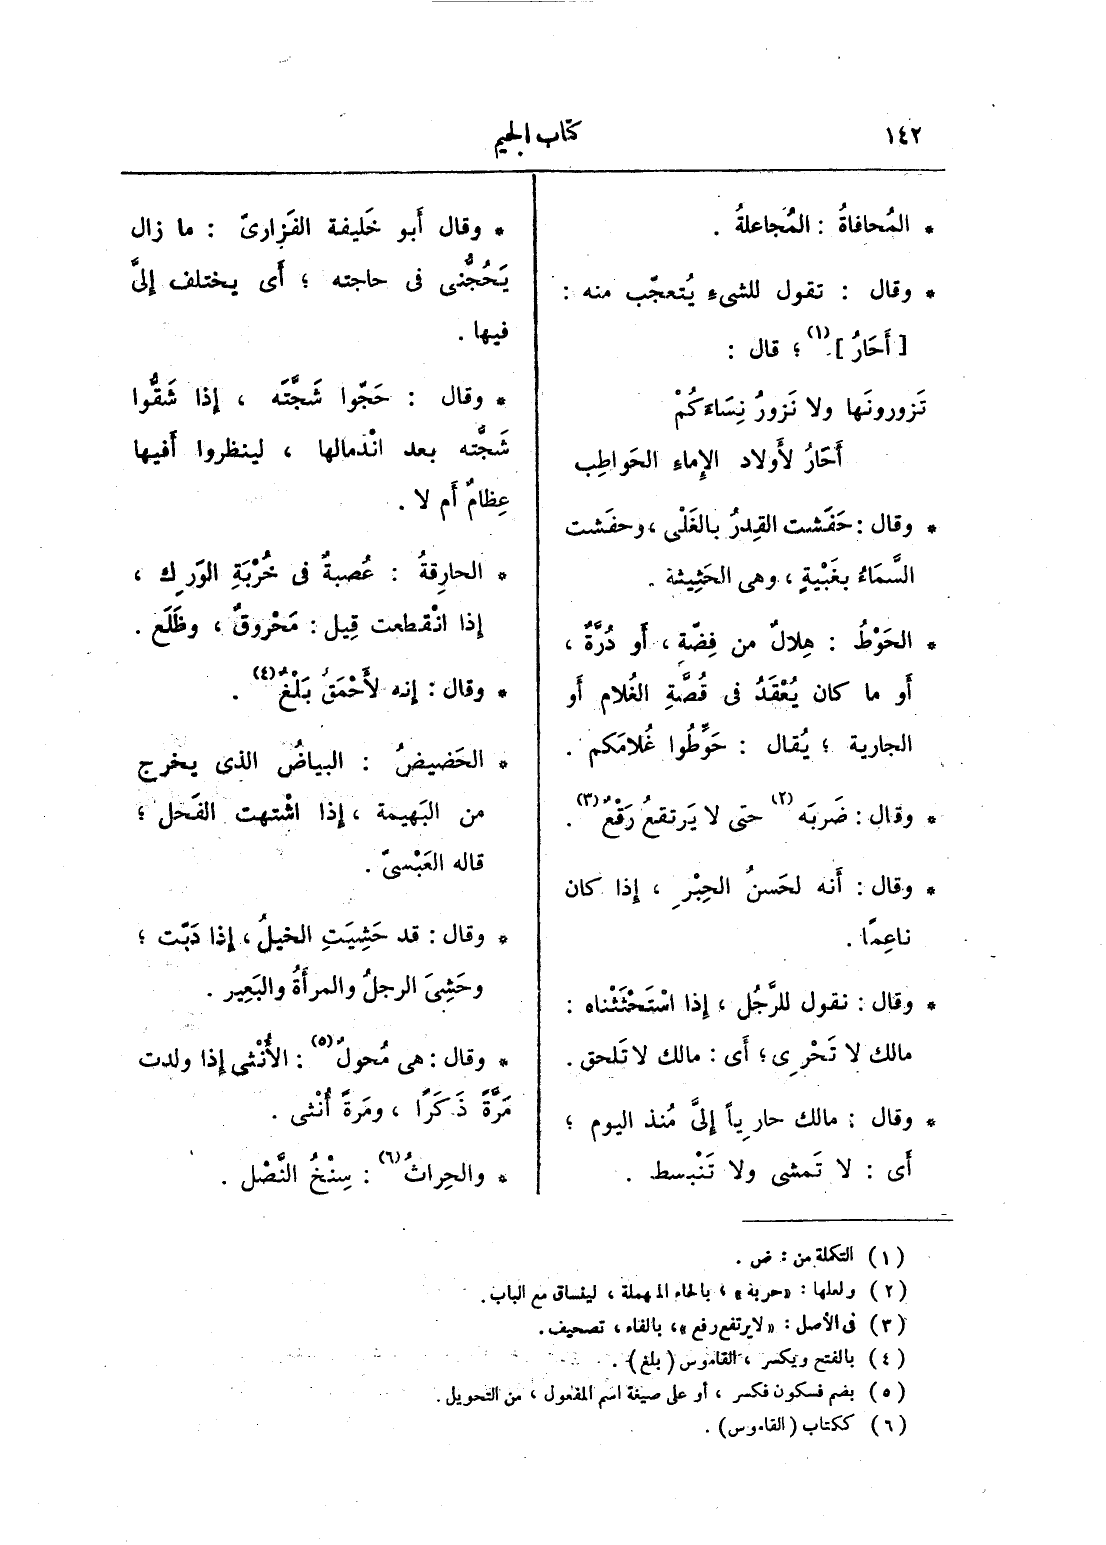 ١٤٢
كتاب الجيم
* المُحافاةُ : المُجاعلةُ .
* وقال : تقول للشىء يُتعجّب منه :
[ أَحَارُ ](١) ؛ قال :
تَزورونَها ولا نَزورُ نِسَاءَكُمْ
أَحَارُ لأَولاد الإِماءِ الحَواطِب
* وقال : حَفَشت القِدرُ بالغَلْى ، وحفَشت
السَّمَاءُ بغَبْيةٍ ، وهى الحَثِيثة .
* الحَوْطُ : هِلالٌ من فِضّةٍ ، أَو دُرَّةٌ ،
أَو ما كان يُعْقَدُ فى قُصَّةِ الغُلام أَو
الجارية ؛ يُقال : حَوِّطُوا غُلامَكم .
* وقال : ضَربَه (٢) حتى لا يَرتقعُ رَقْعٌ (٣) .
* وقال : أَنه لحَسنُ الحِبْرِ ، إِذا كان
ناعِمًا .
* وقال : نقول للرَّجُل ، إِذا اسْتَحْثَثْناه :
مالك لا تَحْرِى ؛ أَى : مالك لا تَلحق .
* وقال : مالك حارِياً إِلىَّ مُنذ اليوم ؛
أَى : لا تَمشى ولا تَنْبسط .
* وقال أَبو خَليفة الفَزارىّ : ما زال
يَحُجُّنى فى حاجته ؛ أَى يختلف إِلىَّ
فيها .
* وقال : حَجّوا شَجَّتَه ، إِذا شَقُّوا
شَجَّته بعد انْدمالها ، لينظروا أَفيها
عِظامٌ أَم لا .
* الحارِقةُ : عُصبةٌ فى خُرْبَةِ الوَرِك ،
إِذا انْقطعت قِيل : مَحْروقٌ ، وظَلَع .
* وقال : إِنه لأَحْمَقُ بَلْغٌ (٤) .
* الحَضيضُ : البياضُ الذى يخرج
من البَهيمة ، إِذا اشْتهت الفَحل ؛
قاله العَبْسىّ .
* وقال : قد حَشِيَتِ الخيلُ ، إِذا دَبّت ؛
وحَشِىَ الرجلُ والمرأَةُ والبَعِير .
* وقال : هى مُحولٌ (٥) : الأُنْثى إِذا ولدت
مَرَّةً ذَكَرًا ، ومَرةً أُنْثى .
* والحِراثُ (٦) : سِنْخُ النَّصْل .
(١) التكملة من : ض .
(٢) ولعلها : «حربة» ، بالحاء المهملة ، لينساق مع الباب .
(٣) فى الأصل : «لا يرتفع رفع» ، بالفاء ، تصحيف .
(٤) بالفتح ويكسر ، القاموس (بلغ) .
(٥) بضم فسكون فكسر ، أو على صيغة اسم المفعول ، من التحويل .
(٦) ككتاب (القاموس) .